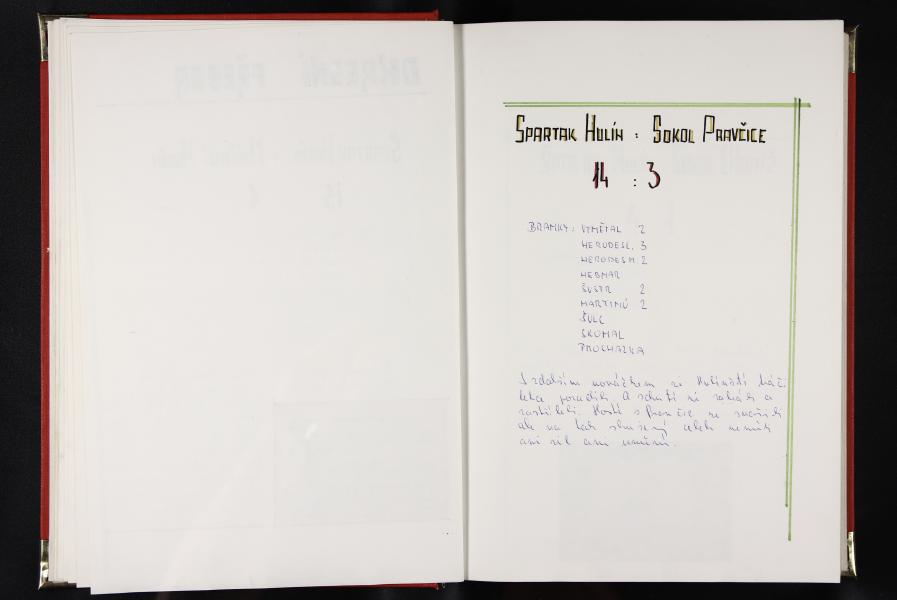 SPARTAK HULÍN : SOKOL PRAVČICE
14 : 3
BRANKY: VYMĚTAL 2
HERODES L. 3
HERODES M. 2
HEBNAR
ŠUSTR 2
MARTINŮ 2
ŠULC
SKOMAL
PROCHÁZKA
S dalším nováčkem si Hulínští hráči
lehce poradili. A chutí si zahráli a
zastříleli. Hosté z Pravčic se snažili
ale na tak sehraný celek neměli
ani sil ani umění.